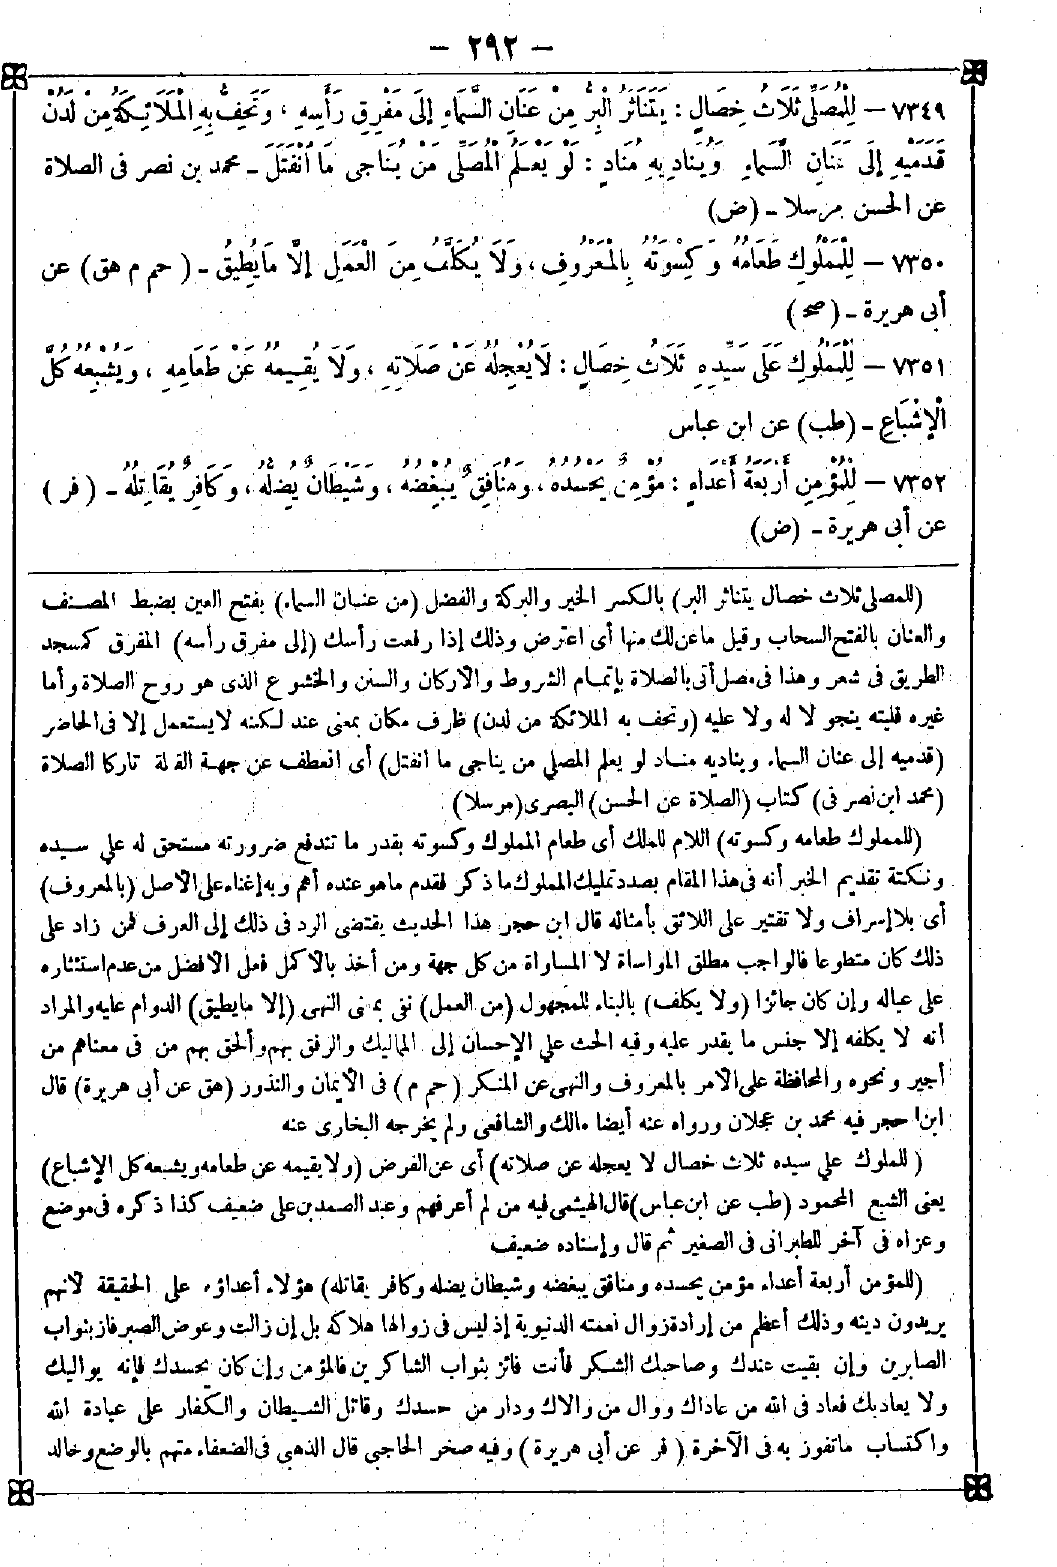 – ٢٩٢ –
٧٣٤٩ – لِلْمُصَلِّى ثَلَاثُ خِصَالٍ : يَتَنَاثَرُ الْبِرُّ مِنْ عَنَانِ السَّمَاءِ إِلَى مَفْرِقِ رَأْسِهِ ، وَتَحِفُّ بِهِ الْمَلَائِكَةُ مِنْ لَدُنْ
قَدَمَيْهِ إِلَى عَنَانِ السَّمَاءِ وَيُنَادِيهِ مُنَادٍ : لَوْ يَعْلَمُ الْمُصَلِّى مَنْ يُنَاجِى مَا انْفَتَلَ - محمد بن نصر فى الصلاة
عن الحسن مرسلا - (ض)
٧٣٥٠ – لِلْمَمْلُوكِ طَعَامُهُ وَكِسْوَتُهُ بِالْمَعْرُوفِ ، وَلَا يُكَلَّفُ مِنَ الْعَمَلِ إِلَّا مَا يُطِيقُ - (حم م هق) عن
أبى هريرة - (صح)
٧٣٥١ – لِلْمَمْلُوكِ عَلَى سَيِّدِهِ ثَلَاثُ خِصَالٍ : لَا يُعْجِلُهُ عَنْ صَلَاتِهِ ، وَلَا يُقِيمُهُ عَنْ طَعَامِهِ ، وَيُشْبِعُهُ كُلَّ
الْإِشْبَاعِ - (طب) عن ابن عباس
٧٣٥٢ – لِلْمُؤْمِنِ أَرْبَعَةُ أَعْدَاءٍ : مُؤْمِنٌ يَحْسُدُهُ ، وَمُنَافِقٌ يُبْغِضُهُ ، وَشَيْطَانٌ يُضِلُّهُ ، وَكَافِرٌ يُقَاتِلُهُ - (فر)
عن أبى هريرة - (ض)
(للمصلى ثلاث خصال يتناثر البر) بالكسر الخير والبركة والفضل (من عنان السماء) بفتح العين بضبط المصنف
والعنان بالفتح السحاب وقيل ما عن لك منها أى اعترض وذلك إذا رفعت رأسك (إلى مفرق رأسه) المفرق كمسجد
الطريق فى شعر وهذا فى مصل أتى بالصلاة بإتمام الشروط والأركان والسنن والخشوع الذى هو روح الصلاة وأما
غيره فليته ينجو لا له ولا عليه (وتحف به الملائكة من لدن) ظرف مكان بمعنى عند لكنه لا يستعمل إلا فى الحاضر
(قدميه إلى عنان السماء ويناديه مناد لو يعلم المصلى من يناجى ما انفتل) أى انعطف عن جهة القبلة تاركا الصلاة
(محمد ابن نصر فى) كتاب (الصلاة عن الحسن) البصرى (مرسلا)
(للمملوك طعامه وكسوته) اللام للملك أى طعام المملوك وكسوته بقدر ما تندفع ضرورته مستحق له على سيده
ونكتة تقديم الخبر أنه فى هذا المقام بصدد تمليك المملوك ما ذكر فقدم ما هو عنده أهم وبه إغناء على الأصل (بالمعروف)
أى بلا إسراف ولا تقتير على اللائق بأمثاله قال ابن حجر هذا الحديث يقتضى الرد فى ذلك إلى العرف فمن زاد على
ذلك كان متطوعا فالواجب مطلق المواساة لا المساواة من كل جهة ومن أخذ بالأكمل فعل الأفضل من عدم استئثاره
على عياله وإن كان جائزا (ولا يكلف) بالبناء للمجهول (من العمل) نفى بمعنى النهى (إلا ما يطيق) الدوام عليه والمراد
أنه لا يكلفه إلا جنس ما يقدر عليه وفيه الحث على الإحسان إلى المماليك والرفق بهم وألحق بهم من فى معناهم من
أجير ونحوه والمحافظة على الأمر بالمعروف والنهى عن المنكر (حم م) فى الأيمان والنذور (هق عن أبى هريرة) قال
ابن حجر فيه محمد بن عجلان ورواه عنه أيضا مالك والشافعى ولم يخرجه البخارى عنه
(للملوك على سيده ثلاث خصال لا يعجله عن صلاته) أى عن الفرض (ولا يقيمه عن طعامه ويشبعه كل الإشباع)
يعنى الشبع المحمود (طب عن ابن عباس) قال الهيثمى فيه من لم أعرفهم وعبد الصمد بن على ضعيف كذا ذكره فى موضع
وعزاه فى آخر للطبرانى فى الصغير ثم قال وإسناده ضعيف
(للمؤمن أربعة أعداء مؤمن يحسده ومنافق يبغضه وشيطان يضله وكافر يقاتله) هؤلاء أعداؤه على الحقيقة لأنهم
يريدون دينه وذلك أعظم من إرادة زوال نعمته الدنيوية إذ ليس فى زوالها هلاكه بل إن زالت وعوض الصبر فاز بثواب
الصابرين وإن بقيت عندك وصاحبك الشكر فأنت فائز بثواب الشاكرين فالمؤمن وإن كان يحسدك فإنه يواليك
ولا يعاديك فعاد فى الله من عاداك ووال من والاك ودار من حسدك وقاتل الشيطان والكفار على عبادة الله
واكتساب ماتفوز به فى الآخرة (فر عن أبى هريرة) وفيه صخر الحاجبي قال الذهبي فى الضعفاء متهم بالوضع وخالد